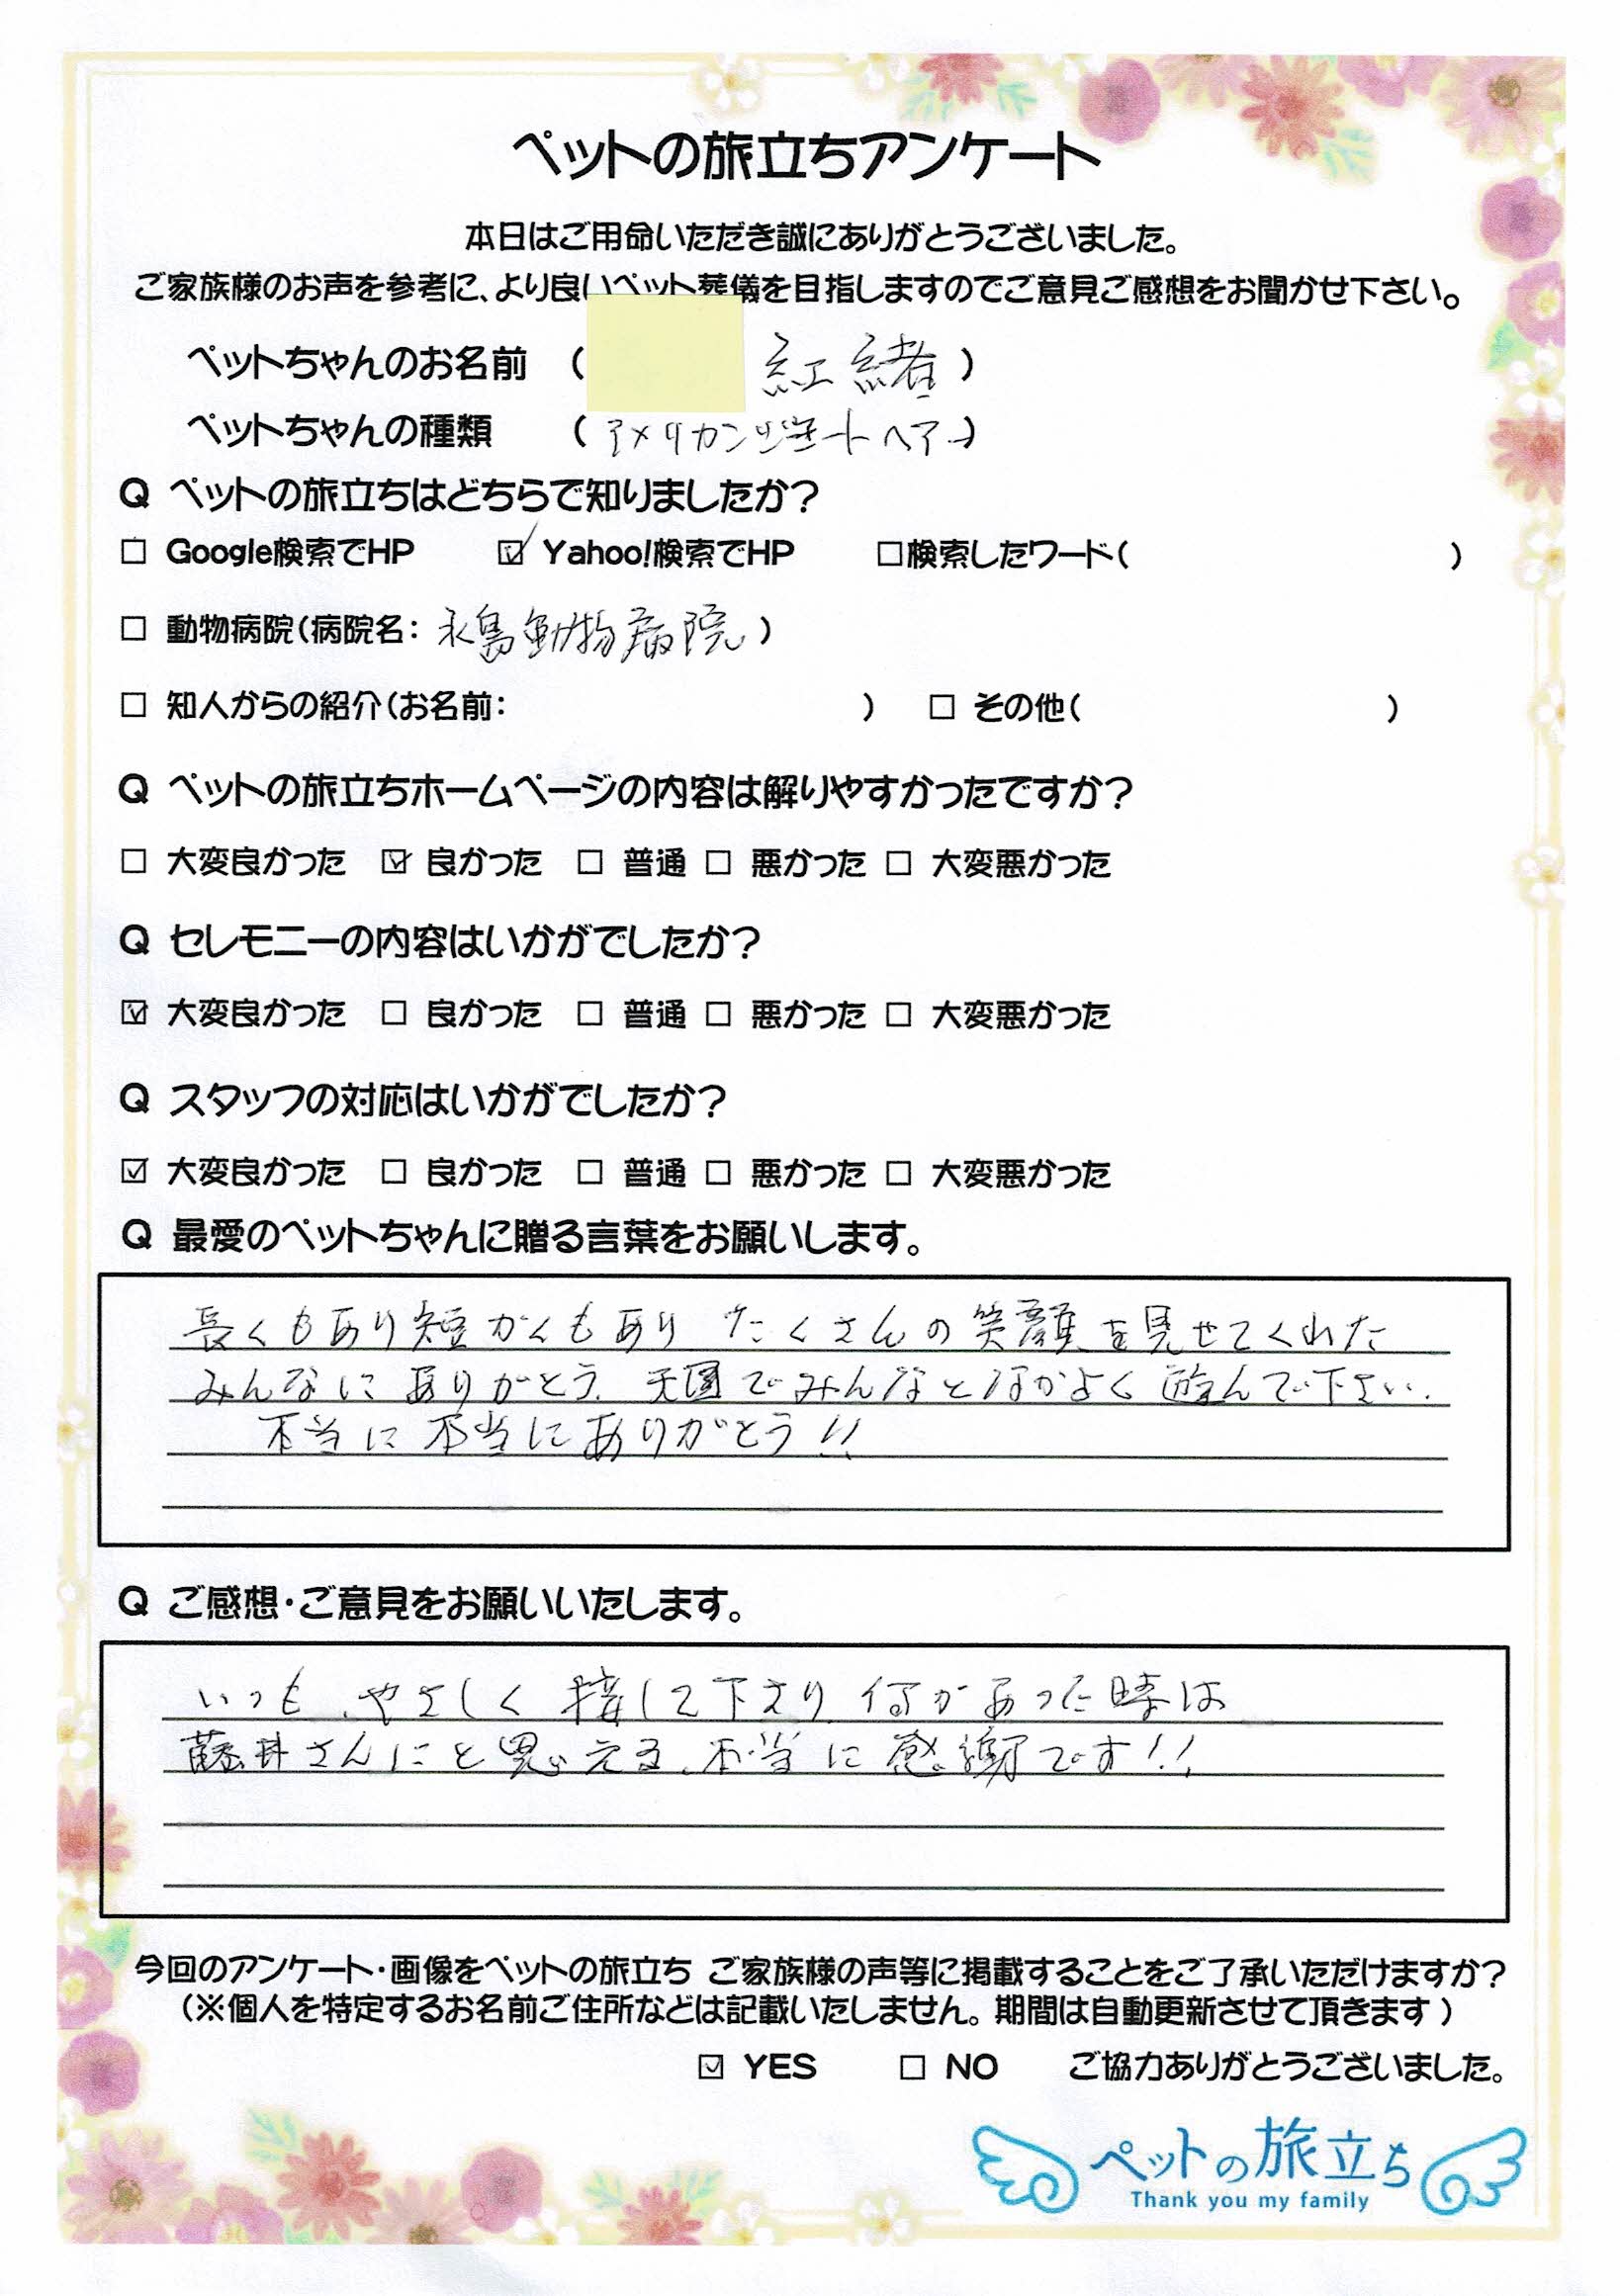 ペットの旅立ちアンケート
本日はご用命いただき誠にありがとうございました。
ご家族様のお声を参考に、より良いペット葬儀を目指しますのでご意見ご感想をお聞かせ下さい。
ペットちゃんのお名前 ( 紅緒 )
ペットちゃんの種類 ( アメリカンショートヘアー )
Q ペットの旅立ちはどちらで知りましたか?
□ Google検索でHP ☑ Yahoo!検索でHP □検索したワード( )
□ 動物病院(病院名: 永島動物病院 )
□ 知人からの紹介(お名前: ) □ その他( )
Q ペットの旅立ちホームページの内容は解りやすかったですか?
□ 大変良かった ☑ 良かった □ 普通 □ 悪かった □ 大変悪かった
Q セレモニーの内容はいかがでしたか?
☑ 大変良かった □ 良かった □ 普通 □ 悪かった □ 大変悪かった
Q スタッフの対応はいかがでしたか?
☑ 大変良かった □ 良かった □ 普通 □ 悪かった □ 大変悪かった
Q 最愛のペットちゃんに贈る言葉をお願いします。
長くもあり短かくもあり たくさんの笑顔を見せてくれた
みんなに ありがとう。天国でみんなとなかよく遊んで下さい。
本当に本当にありがとう!!
Q ご感想・ご意見をお願いいたします。
いつも、やさしく接して下さり、何かあった時は
藤井さんにと思える。本当に感謝です!!
今回のアンケート・画像をペットの旅立ち ご家族様の声等に掲載することをご了承いただけますか?
(※個人を特定するお名前ご住所などは記載いたしません。期間は自動更新させて頂きます)
☑ YES □ NO ご協力ありがとうございました。
ペットの旅立ち
Thank you my family